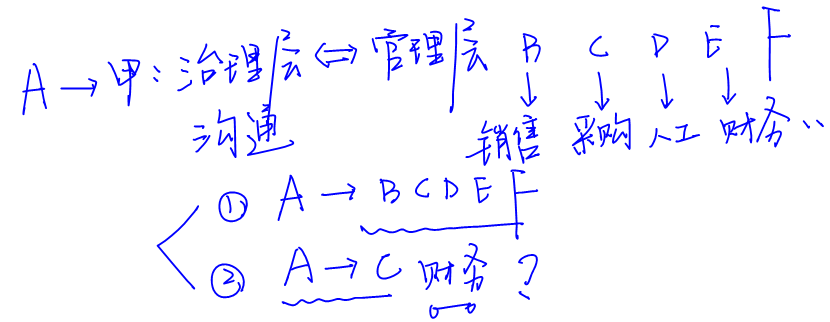 A → 甲：治理层 ⇔ 管理层 B C D E F
沟通 ↓ ↓ ↓ ↓
销售 采购 人工 财务 ..
① A → B C D E F
② A → C 财务 ?